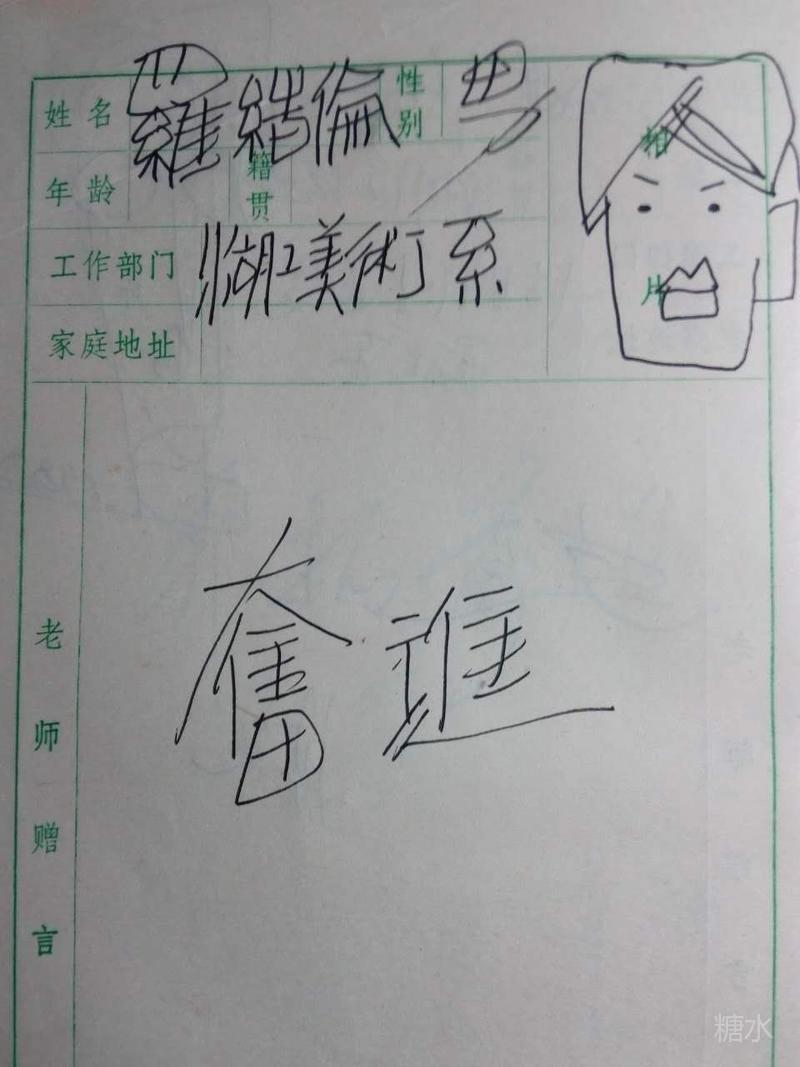 姓名 羅結倫 性别 男
年龄 籍贯
工作部门 湖工美術系
家庭地址
相片
奮進
老师赠言
糖水